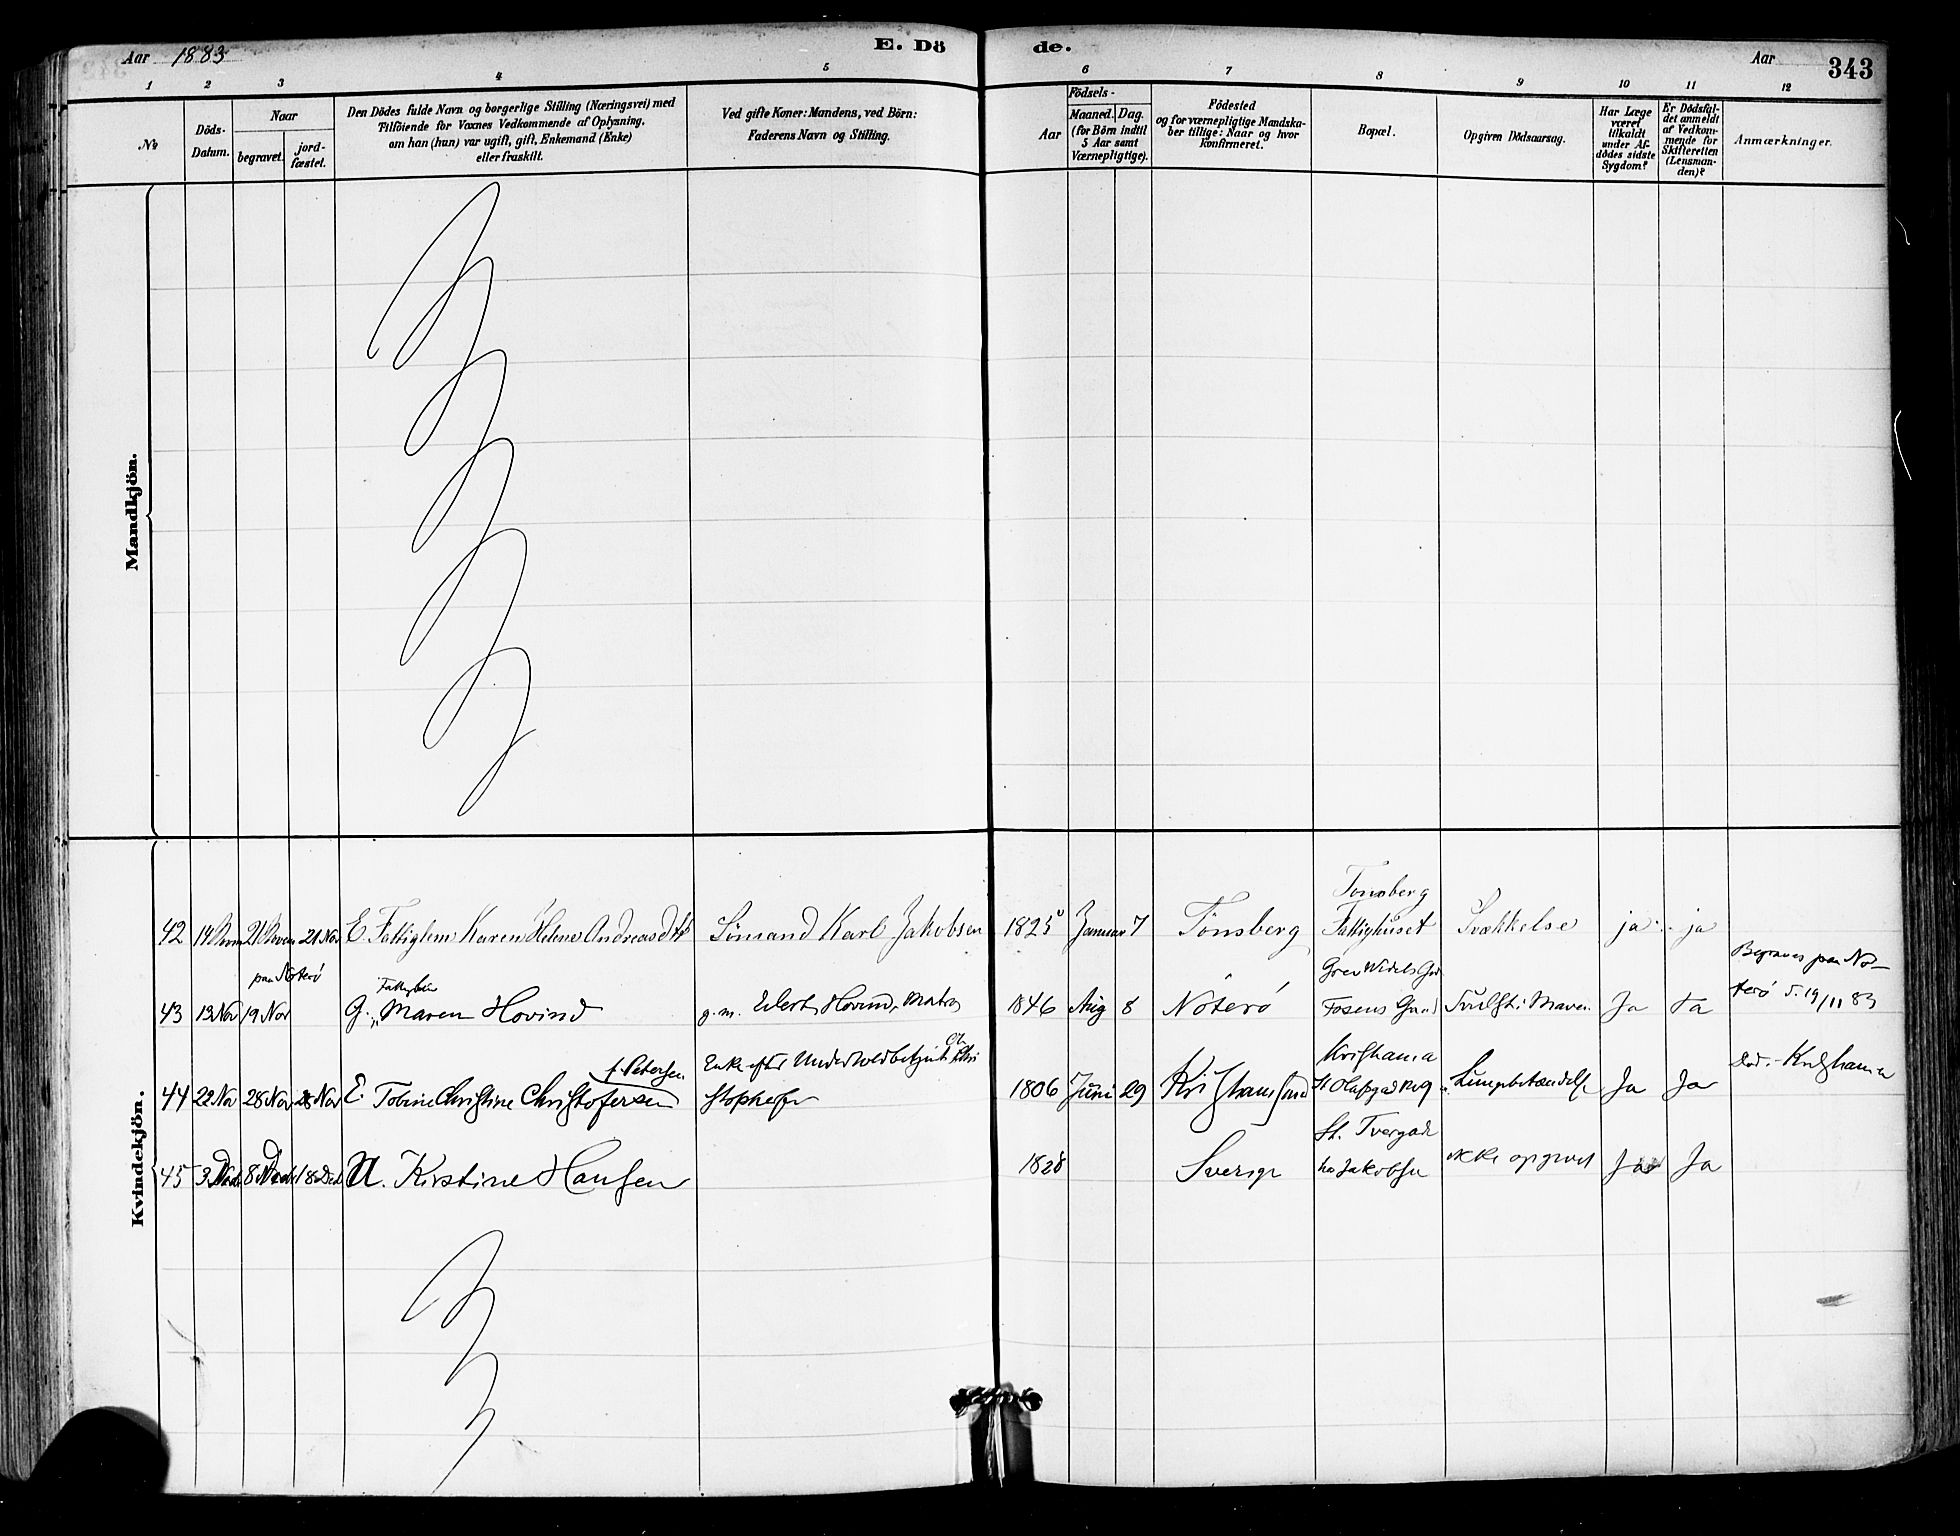 Aar 1883 E. Dö de. Aar 343
1 2 3 4 5 6 7 8 9 10 11 12
№
Döds-
Datum.
Naar
begravet. jord-
fæstet.
Den Dödes fulde Navn og borgerlige Stilling (Næringsvei) med
Tilföiende for Voxnes Vedkommende af Oplysning,
om han (hun) var ugift, gift, Enkemand (Enke)
eller fraskilt.
Ved gifte Koner: Mandens, ved Börn:
Faderens Navn og Stilling.
Födsels-
Aar Maaned. Dag.
(for Börn indtil
5 Aar samt
Værnepligtige).
Födested
og for værnepligtige Mandska-
ber tillige: Naar og hvor
konfirmeret.
Bopæl.
Opgiven Dödsaarsag.
Har Læge
været
tilkaldt
under Af-
dödes sidste
Sygdom?
Er Dödsfal-
det anmeldt
af Vedkom-
mende for
Skifteretten
(Lensman-
den)?
Anmærkninger.
Mandkjön.
Kvindekjön.
Tønsberg
42 14 21 21 Nov E. Fattiglem Karen Helene Andreasdtr Sømand Karl Jakobsen 1825 Januar 7 Tönsberg Fattighuset Svækkelse ja ja
paa Nøterö Begraves paa Nø-
43 13 Nov 19 Nov G. Maren Hovind g. m. Hovind, Matros 1846 Aug 8 Nöterö Fosens Svulst i Maven Ja Ja terö d. 19/11 83
f. Petersen Enke efter Kristiania
44 22 Nov 28 Nov 28 Nov E. Tobine Christine Christofersen 1806 Juni 29 Kristiansund St Olafsgad No 9 Lungebetændelse Ja Ja
St. Tvergade
45 3 8 18 Dec U. Kirstine Hansen 1828 Sverige hos Jakobsen ikke opgivet Ja Ja